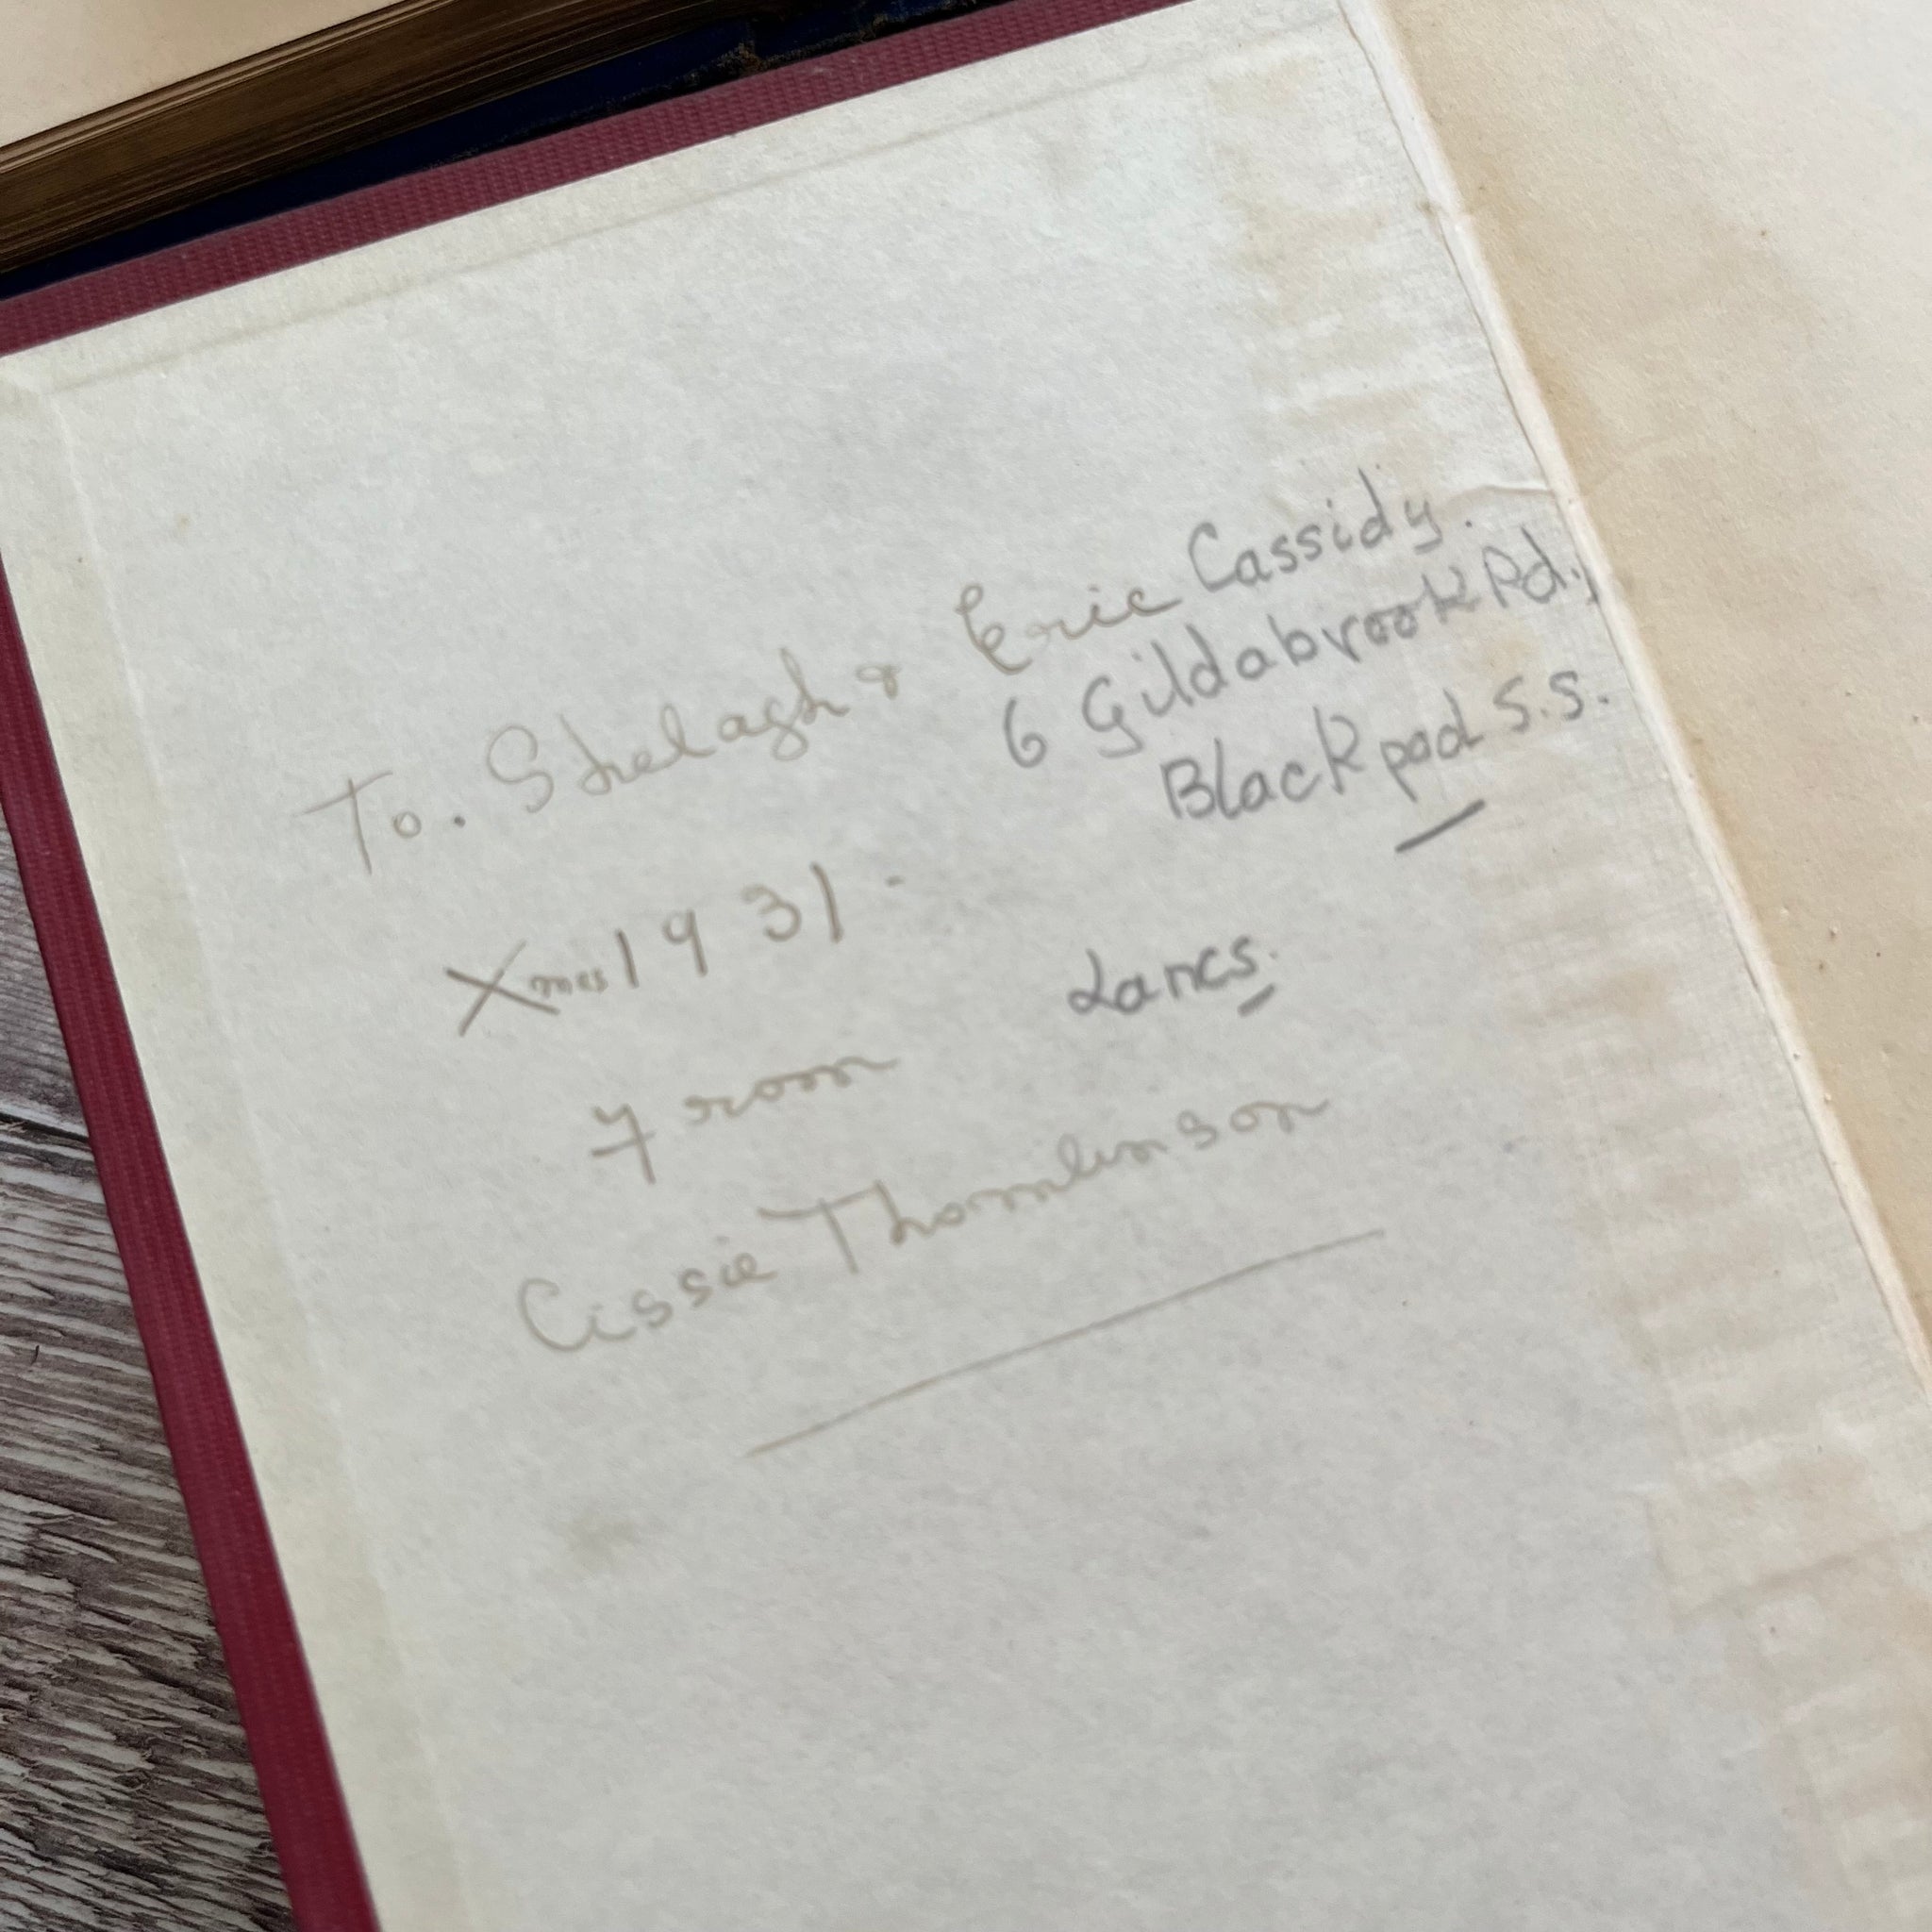 To. Shelagh & Eric Cassidy.
6 Gildabrook Rd.,
Blackpool S.S.
Xmas 1931.
Lancs.
From
Cissie Thomlinson